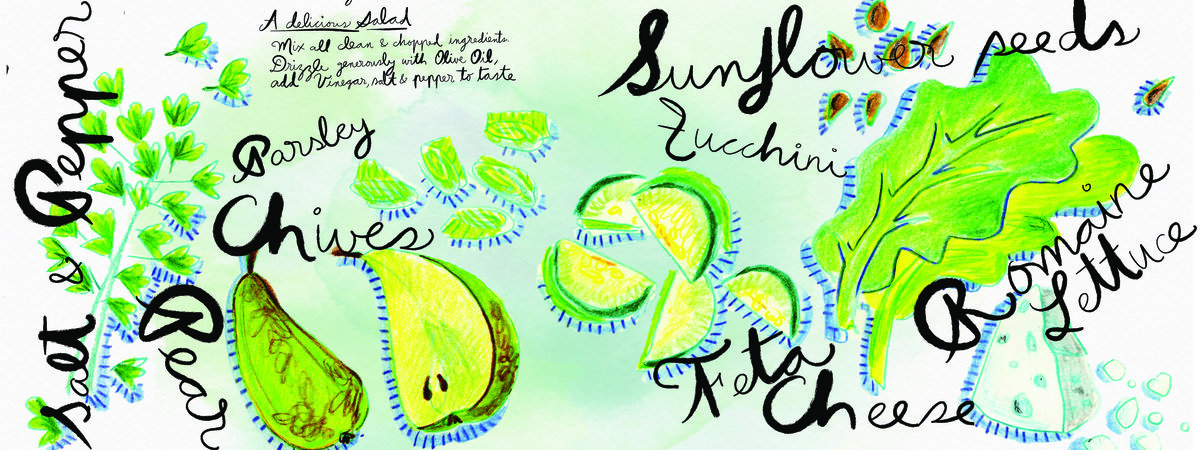 A delicious Salad
Mix all clean & chopped ingredients.
Drizzle generously with Olive Oil,
add Vinegar, salt & pepper to taste
Salt & Pepper
Parsley
Chives
Pear
Sunflower seeds
Zucchini
Romaine
Lettuce
Feta
Cheese